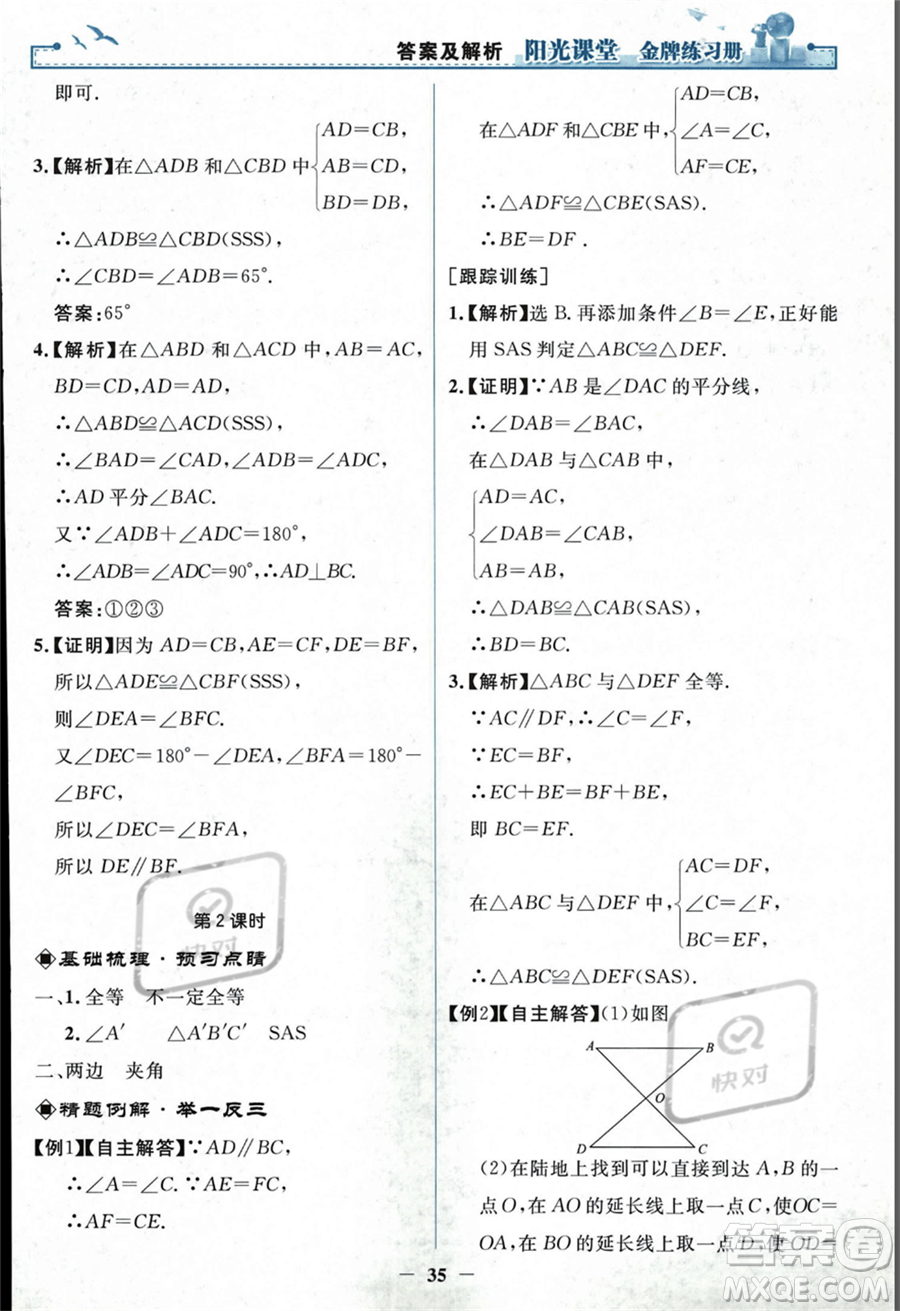 答案及解析 阳光课堂 金牌练习册
即可.
3.【解析】在△ADB 和△CBD 中
AD=CB,
AB=CD,
BD=DB,
∴△ADB≌△CBD(SSS),
∴∠CBD=∠ADB=65°.
答案:65°
4.【解析】在△ABD 和△ACD 中,AB=AC,
BD=CD,AD=AD,
∴△ABD≌△ACD(SSS),
∴∠BAD=∠CAD,∠ADB=∠ADC,
∴AD 平分∠BAC.
又∵∠ADB+∠ADC=180°,
∴∠ADB=∠ADC=90°,∴AD⊥BC.
答案:①②③
5.【证明】因为 AD=CB,AE=CF,DE=BF,
所以△ADE≌△CBF(SSS),
则∠DEA=∠BFC.
又∠DEC=180°-∠DEA,∠BFA=180°-
∠BFC,
所以∠DEC=∠BFA,
所以 DE∥BF.
第 2 课时
基础梳理·预习点睛
一、1.全等 不一定全等
2.∠A′ △A′B′C′ SAS
二、两边 夹角
精题例解·举一反三
【例1】【自主解答】∵AD∥BC,
∴∠A=∠C.∵AE=FC,
∴AF=CE.
在△ADF 和△CBE 中,
AD=CB,
∠A=∠C,
AF=CE,
∴△ADF≌△CBE(SAS).
∴BE=DF.
[跟踪训练]
1.【解析】选 B.再添加条件∠B=∠E,正好能
用 SAS 判定△ABC≌△DEF.
2.【证明】∵AB 是∠DAC 的平分线,
∴∠DAB=∠BAC,
在△DAB 与△CAB 中,
AD=AC,
∠DAB=∠CAB,
AB=AB,
∴△DAB≌△CAB(SAS),
∴BD=BC.
3.【解析】△ABC 与△DEF 全等.
∵AC∥DF,∴∠C=∠F,
∵EC=BF,
∴EC+BE=BF+BE,
即 BC=EF.
在△ABC 与△DEF 中,
AC=DF,
∠C=∠F,
BC=EF,
∴△ABC≌△DEF(SAS).
【例2】【自主解答】(1)如图
A B
O
D C
(2)在陆地上找到可以直接到达 A,B 的一
点 O,在 AO 的延长线上取一点 C,使OC=
OA,在 BO 的延长线上取一点 D,使 OD=
35
快对
快对
答案圈
MXQE.COM